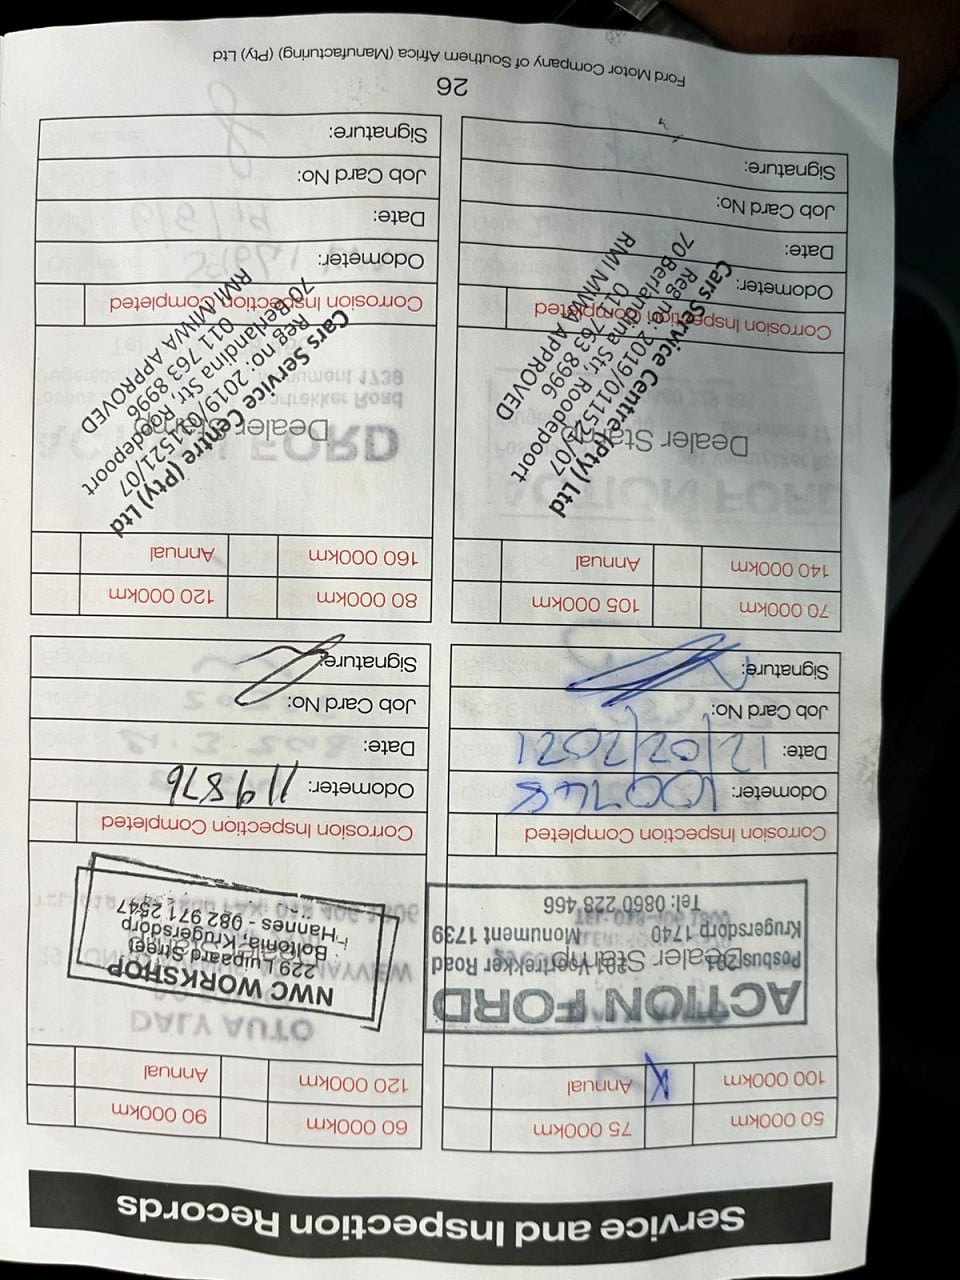 Service and Inspection Records
50 000km
75 000km
100 000km
X
Annual
ACTION FORD
201 Voortrekker Road
Dealer Stamp
Krugersdorp 1740 Monument 1739
Tel: 0860 228 466
Corrosion Inspection Completed
Odometer: 100748
Date: 12/02/2021
Job Card No:
Signature:
60 000km
90 000km
120 000km
Annual
NWC WORKSHOP
229 Luipaard Street
Boltonia, Krugersdorp
Hannes - 082 971 2547
Corrosion Inspection Completed
Odometer: 119876
Date:
Job Card No:
Signature:
70 000km
105 000km
140 000km
Annual
Dealer Stamp
Cars Service Centre (Pty) Ltd
Reg no: 2019/011521/07
70 Berlandina Str, Roodepoort
011 763 8996
RMI MIWA APPROVED
Corrosion Inspection Completed
Odometer:
Date:
Job Card No:
Signature:
80 000km
120 000km
160 000km
Annual
Dealer Stamp
Cars Service Centre (Pty) Ltd
Reg no: 2019/011521/07
70 Berlandina Str, Roodepoort
011 763 8996
RMI MIWA APPROVED
Corrosion Inspection Completed
Odometer:
Date:
Job Card No:
Signature:
26
Ford Motor Company of Southern Africa (Manufacturing) (Pty) Ltd